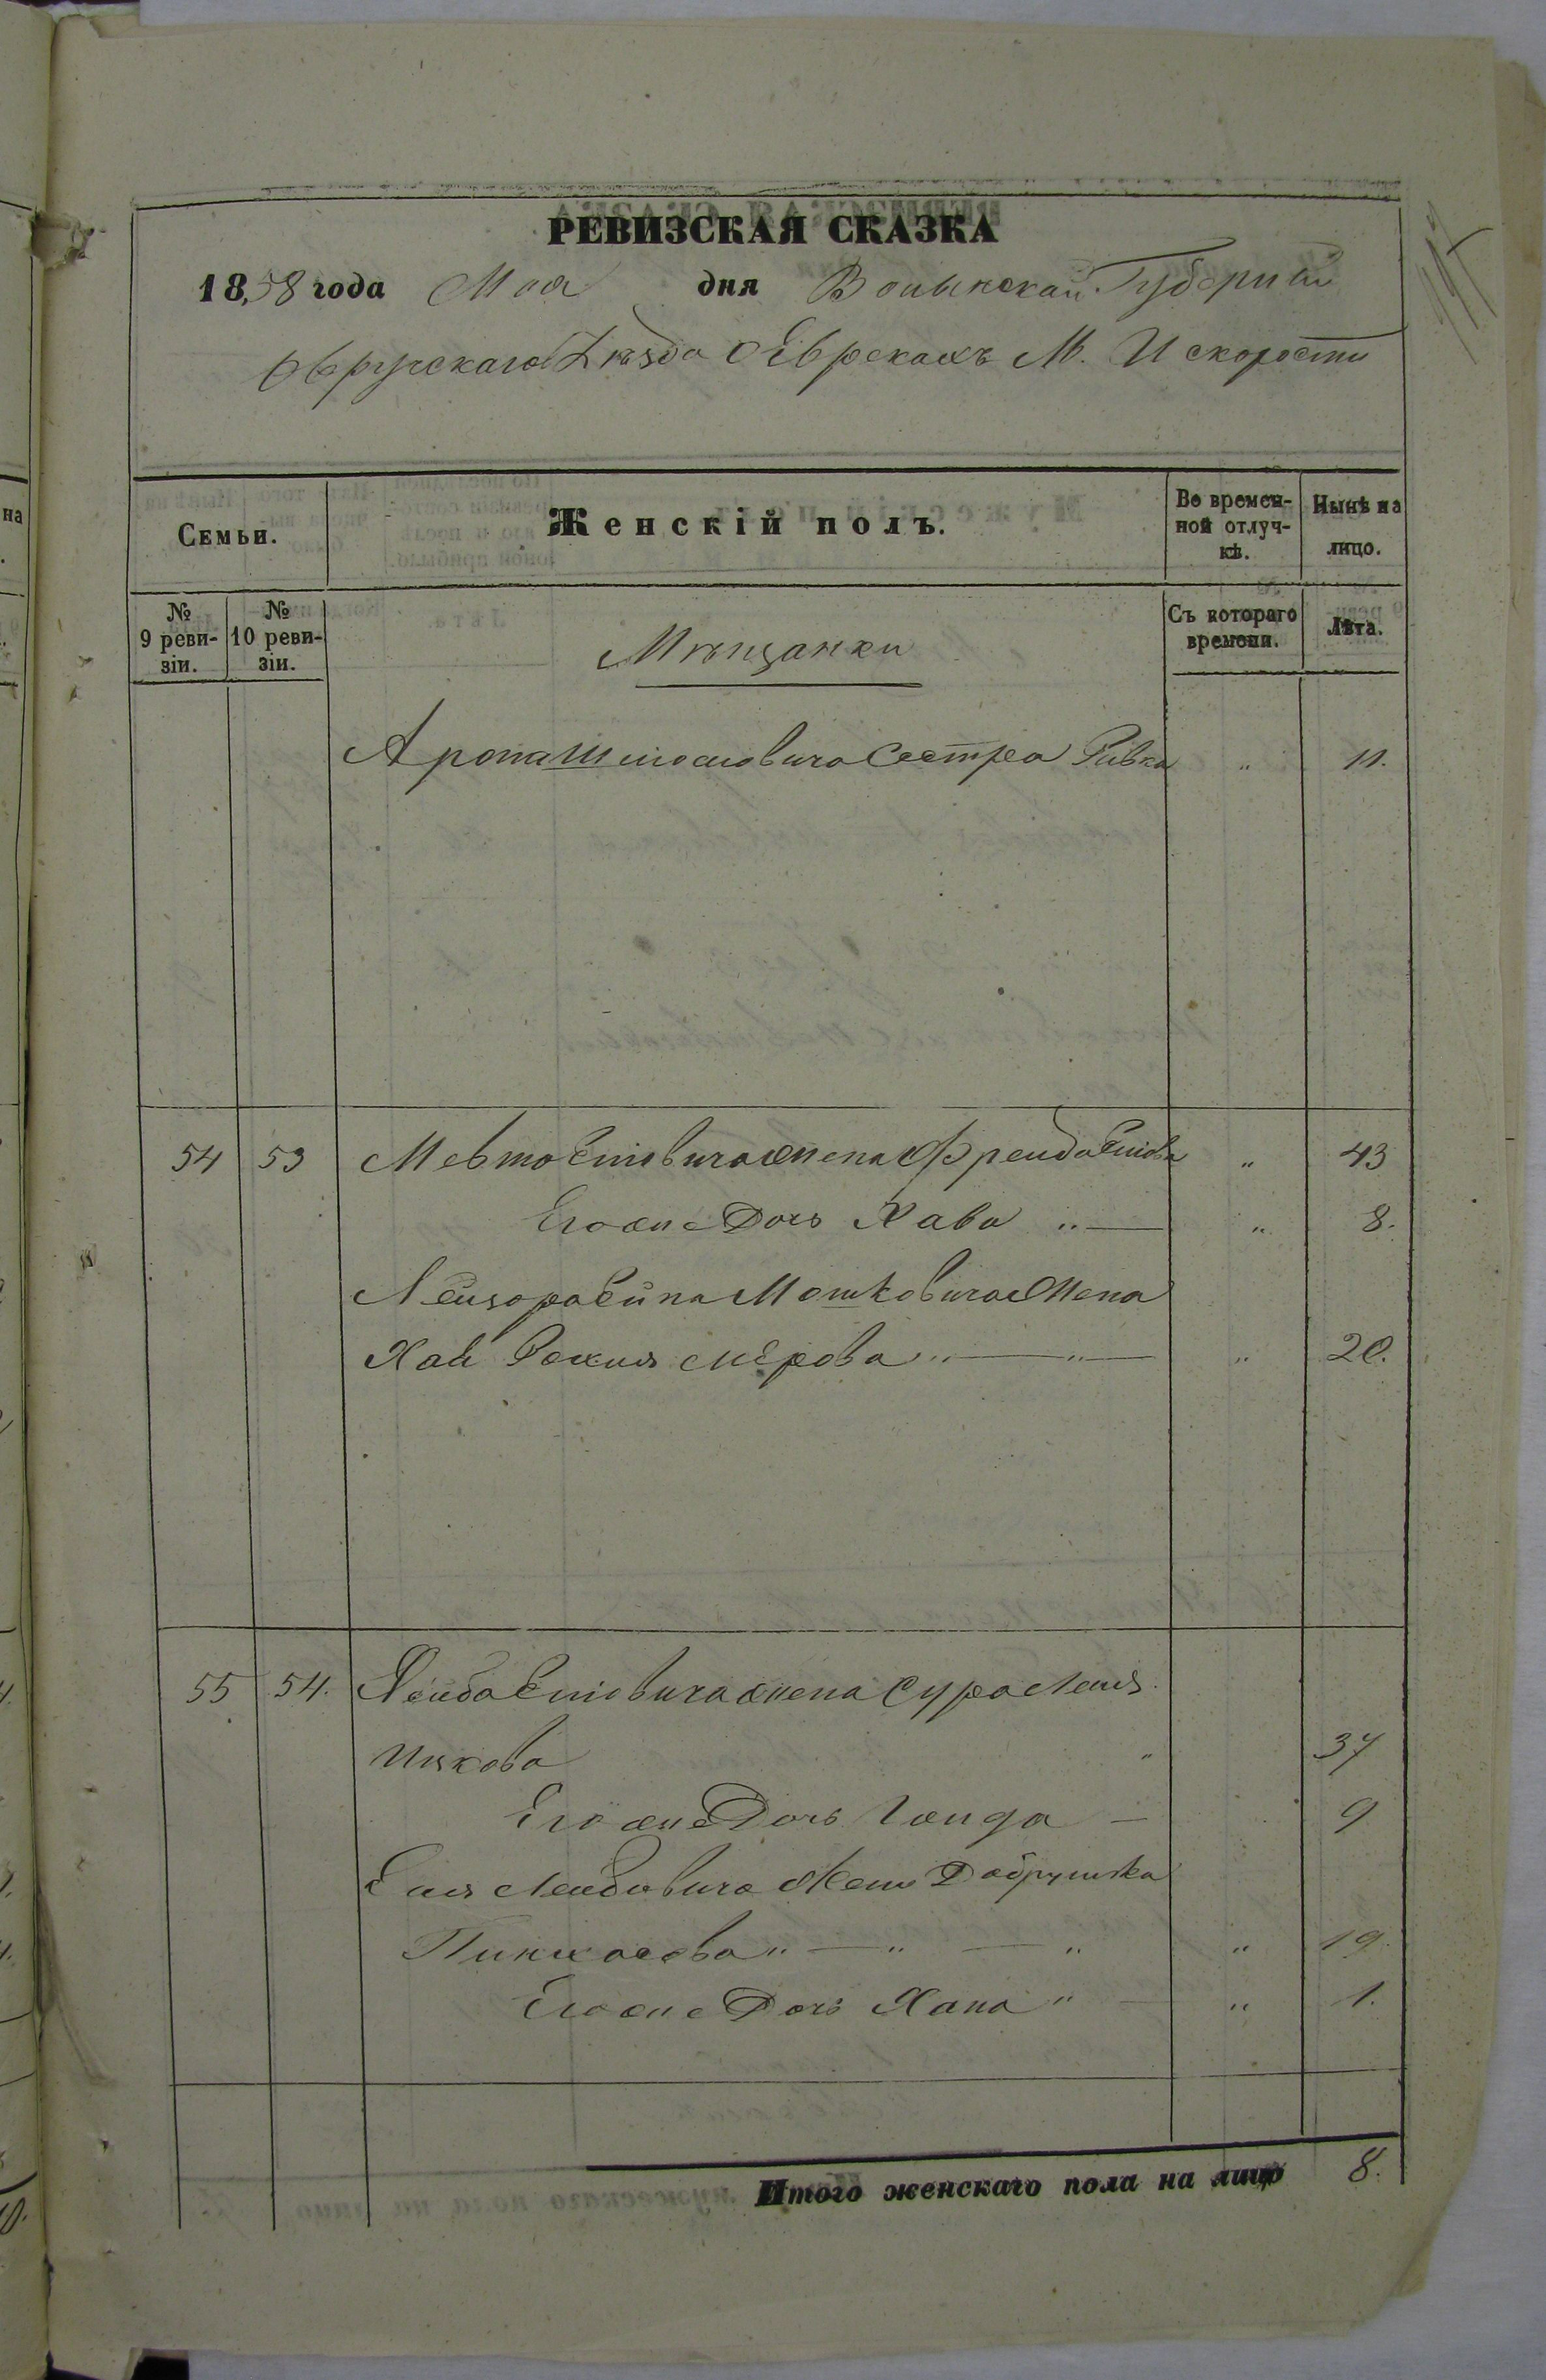 РЕВИЗСКАЯ СКАЗКА
1858 года Мая дня Волынской Губернии
Овручского Уѣзда О Евреяхъ М. Искорости
Семьи.
Женскій полъ.
Во времен-
ной отлуч-
кѣ.
Нынѣ на
лицо.
№
9 реви-
зіи.
№
10 реви-
зіи.
Мѣщанки
Съ котораго
времени.
Лѣта.
Арона Шлиомовича Сестра Ривка " 11.
54 53 Мевша Елiовича жена Фрейда Елiова " 43
Егоже Дочь Хава " — " 8.
Лейзора Мошковича Жена
Хая " — " — " 20.
55 54. Лейба Елiовича жена Сура Лея
Ицкова " 37
Егоже Дочь — 9
Еля Лейбовича Жена Добрушка
Пинхасова " — " — " " 19.
Егоже Дочь Хана " — " 1.
Итого женскаго пола на лицо 8.